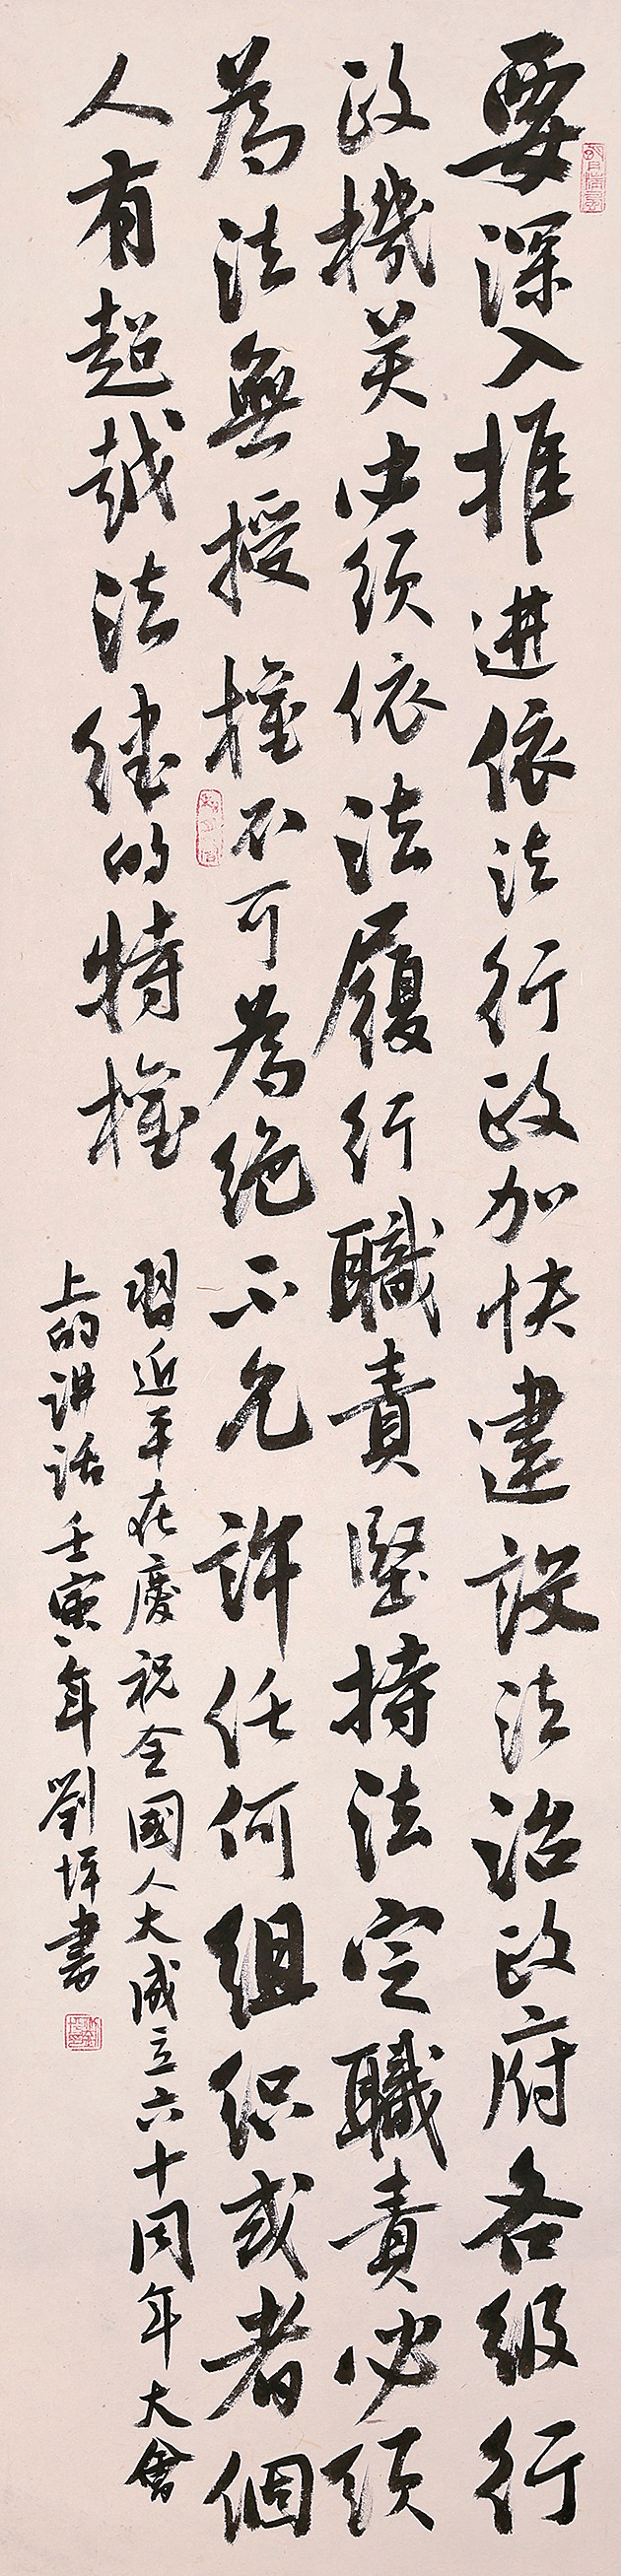 要深入推进依法行政加快建设法治政府各级行
政機关必须依法履行職責堅持法定職責必须
為法無授權不可為绝不允許任何组织或者個
人有超越法律的特權
習近平在慶祝全國人大成立六十周年大會
上的讲话壬寅年劉坪書